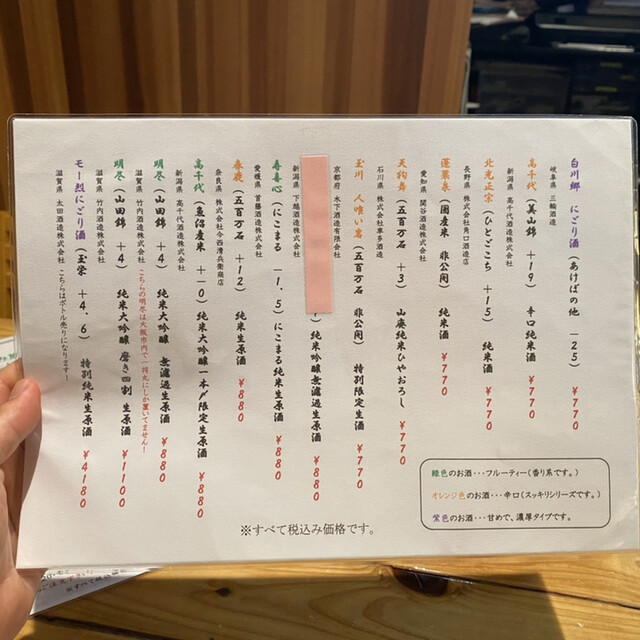 白川郷 にごり酒 (あけぼの他 -25) ¥770
岐阜県 三輪酒造
高千代 (美山錦 +19) 辛口純米酒 ¥770
新潟県 高千代酒造株式会社
北光正宗 (ひとごこち +15) 純米酒 ¥770
長野県 株式会社角口酒造店
蓬莱泉 (国産米 非公開) 純米酒 ¥770
愛知県 関谷酒造株式会社
天狗舞 (五百万石 +3) 山廃純米ひやおろし ¥770
石川県 株式会社車多酒造
玉川 人喰い岩 (五百万石 非公開) 特別限定生酒 ¥770
京都府 木下酒造有限会社
) 純米大吟醸無濾過生原酒 ¥880
新潟県 下越酒造株式会社
寿喜心 (にこまる -1.5) にこまる純米生原酒 ¥880
愛媛県 首藤酒造株式会社
春鹿 (五百万石 +12) 純米生原酒 ¥880
奈良県 株式会社今西清兵衛商店
高千代 (魚沼産米 +-0) 純米大吟醸一本〆限定生原酒 ¥880
新潟県 高千代酒造株式会社
明尽 (山田錦 +4) 純米大吟醸 無濾過生原酒 ¥880
滋賀県 竹内酒造株式会社 こちらの明尽は大阪市内で一将丸にしか置いてません!
明尽 (山田錦 +4) 純米大吟醸 磨き四割 生原酒 ¥1100
滋賀県 竹内酒造株式会社
モー烈にごり酒 (玉栄 +4.6) 特別純米生原酒 ¥4180
滋賀県 太田酒造株式会社 こちらはボトル売りになります!
緑色のお酒・・・フルーティー(香り系です。)
オレンジ色のお酒・・・辛口(スッキリシリーズです。)
紫色のお酒・・・甘めで、濃厚タイプです。
※すべて税込み価格です。